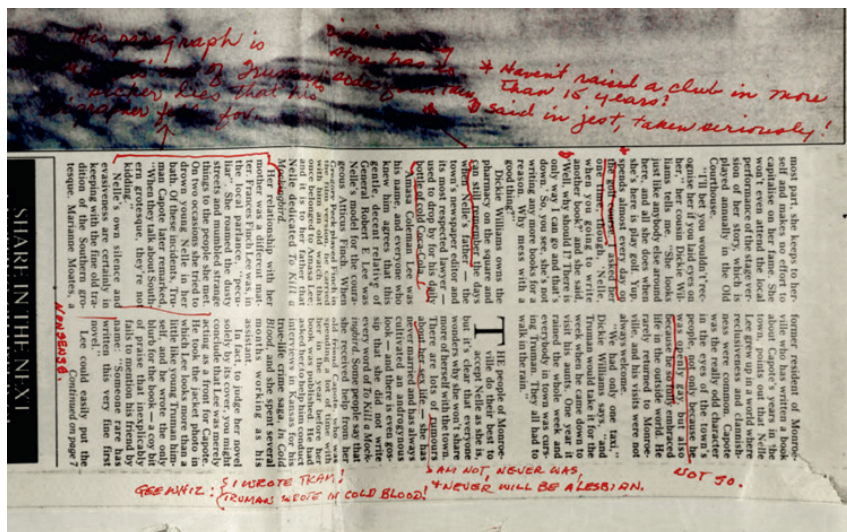 This paragraph is
of Truman's
lies that his
biographer fell for.
store has no
soda fountain
* Haven't raised a club in more
than 15 years!
said in jest, taken seriously!
most part, she keeps to her-
self and makes no effort to
capitalise on her fame. She
won't even attend the local
performance of the stage ver-
sion of her story, which is
played annually in the Old
Courthouse.
"I'll bet you wouldn't rec-
ognise her if you laid eyes on
her," her cousin Dickie Wil-
liams tells me. "She looks
just like anybody else around
here and all she does when
she's here is play golf. Yup,
spends almost every day on
the golf course. I asked her
one time though, 'Nelle,
when you going to write
another book?' and she said,
'Well, why should I? There is
only way I can go and that's
down.' So, you see, she's not
writing any books, for a
reason. Why mess with a
good thing?"
Dickie Williams owns the
pharmacy on the square and
can still remember the days
when Nelle's father — the
town's newspaper editor and
its most respected lawyer —
used to drop by for his daily
bottle of Coca-Cola.
"Amasa Coleman Lee was
his name, and everyone who
knew him agrees that this
gentle decent relative of
General Robert E Lee was
Nelle's model for the coura-
geous Atticus Finch. When
Gregory Peck played Finch in
the film version, he carried
with him an old watch that
once belonged to Amasa Lee;
and it is to her father that
Nelle dedicated To Kill a
Mockingbird.
Her relationship with her
mother was a different mat-
ter. Frances Finch Lee was, in
the local parlance, "pecu-
liar". She roamed the dusty
streets and mumbled strange
things to the people she met.
On two occasions she tried to
drown young Nelle in the
bath. Of these incidents, Tru-
man Capote later remarked,
"When they talk about South-
ern grotesque, they're not
kidding."
Nelle's own silence and
evasiveness are certainly in
keeping with the fine old tra-
dition of the Southern gro-
tesque. Marianne Moates, a
former resident of Monroe-
ville who has written a book
about Capote's years in the
town, points out that Nelle
Lee grew up in a world where
reclusiveness and clannish-
ness were common. Capote
was the really odd character
in the eyes of the town's
people, not only because he
was openly gay, but also
because he so fully embraced
life in the outside world. He
rarely returned to Monroe-
ville and his visits were not
always welcome.
"We had only one taxi,"
Dickie Williams says, "and
Truman would take it for the
week when he came down to
visit his aunts. One year it
rained the whole week and
everybody in town was curs-
ing Truman. They all had to
walk in the rain."
THE people of Monroe-
ville do their best to
accept Nelle as she is,
but it's clear that everyone
wonders why she won't share
more of herself with the town.
There are lots of rumours
about her sex life — she has
never married and has always
cultivated an androgenous
look — and there is even gos-
sip that she did not write
every word of To Kill a Mock-
ingbird. Some people say that
she received help from her
old friend Capote, who was
spending a lot of time with
her in the year before her
book was published. He had
asked her to help him conduct
interviews in Kansas for his
true-life murder saga, In Cold
Blood, and she spent several
months working as his
assistant.
In fact, to judge her novel
solely by its cover, you might
conclude that Lee was merely
acting as a front for Capote.
He took the jacket photo in
which Lee looks more than a
little like young Truman him-
self, and he wrote the only
blurb for the book — a coy bit
of praise that inexplicably
fails to mention his friend by
name: "Someone rare has
written this very fine first
novel."
Lee could easily put the
Continued on page 7
SHARE IN THE NEXT
NONSENSE.
GEE WHIZ: { I WROTE TKAM!
{ TRUMAN WROTE IN COLD BLOOD!
AM NOT, NEVER WAS,
+ NEVER WILL BE A LESBIAN.
NOT SO.